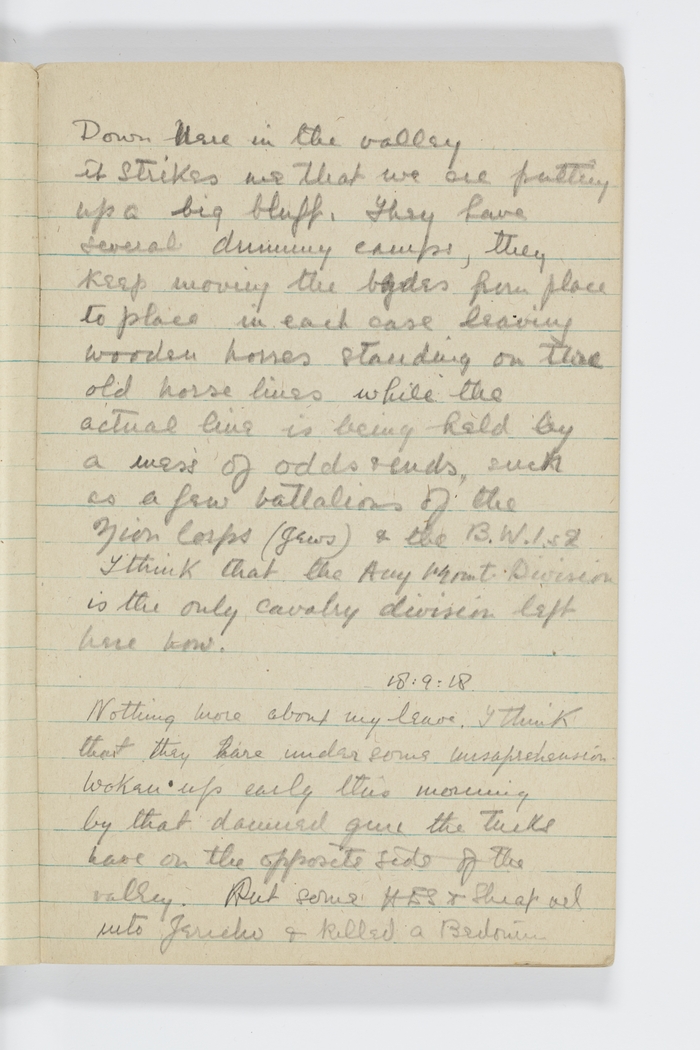 Down Here in the valley
it strikes me that we are putting
up a big bluff. They have
several dummy camps, they
keep moving the bgdes from place
to place in each case leaving
wooden horses standing on the
old horse lines while the
actual line is being held by
a mess of odds & ends, such
as a few battalions of the
Zion Corps (Jews) & the B.W.I.s
I think that the Anz Mount. Division
is the only cavalry division left
here now.
18:9:18
Nothing more about my leave. I think
that they are under some misaprehension
Woken up early this morning
by that damned gun the Turks
have on the opposite side of the
valley. Put some H E S & Shrapnel
into Jericho & killed a Bedouin